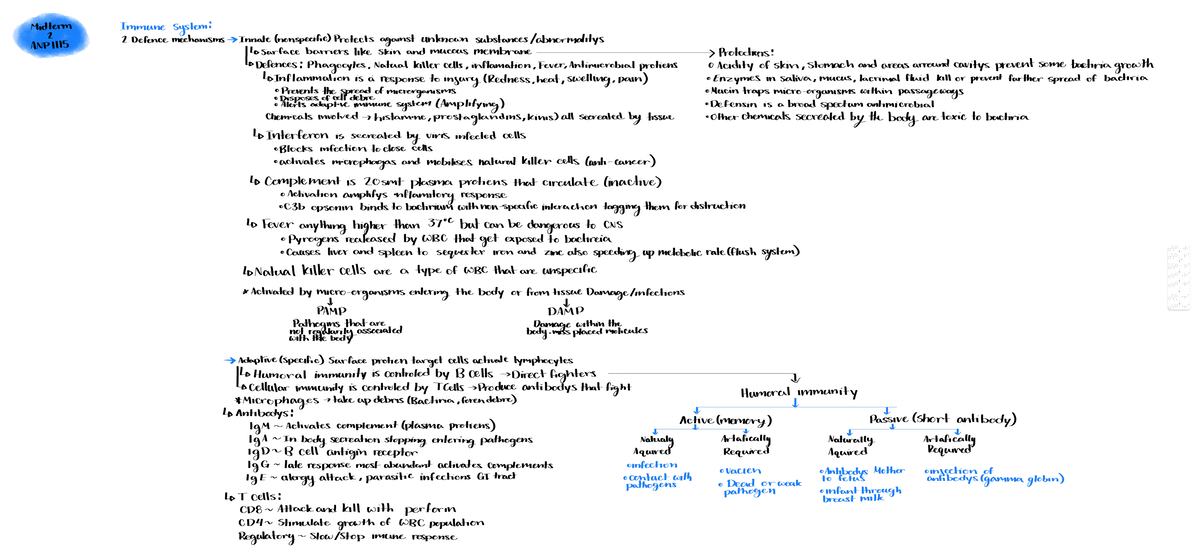 Midterm
2
ANP1115
Immune System:
2 Defence mechanisms → Innate (nonspecific) Protects against unknown substances/abnormalitys
↳ Surface barriers like skin and mucous membrane → Protections:
↳ Defences: Phagocytes, Natual killer cells, inflamation, Fever, Antimicrobial protiens
↳ Inflammation is a response to injury (Redness, heat, swelling, pain)
• Prevents the spread of microrganisms
• Disposes of cell debre
• Alerts adaptive immune system (Amplifying)
Chemicals involved → histamine, prostaglandins, kinis) all secreated by tissue
• Acidity of skin, stomach and areas arround cavitys prevent some bactiria growth
• Enzymes in saliva, mucus, lacrimal fluid kill or prevent farther spread of bactiria
• Mucin traps micro-organisms within passageways
• Defensin is a broad spectum antimicrobial
• Other chemicals secreated by the body are toxic to bactiria
↳ Interferon is secreated by viris infected cells
• Blocks infection to close cells
• activates macrophagas and mobilises natural killer cells (anti-cancer)
↳ Complement is 20smt plasma protiens that circulate (inactive)
• Activation amplifys inflamitory response
• C3b opsonin binds to bactirium with non-specific interaction tagging them for distruction
↳ Fever anything higher than 37°C but can be dangerous to CNS
• Pyrogens realeased by WBC that get exposed to bactireia
• Causes liver and spleen to sequester iron and zinc also speeding up metobolic rate (flush system)
↳ Natual killer cells are a type of WBC that are unspecific
* Activated by micro-organisms entering the body or from tissue Damage/infections
PAMP
Pathogins that are
not regularity associated
with the body
DAMP
Damage within the
body-miss placed molicules
→ Adaptive (specific) Surface protien target cells activate lymphocytes
↳ Humoral immunity is controled by B cells → Direct fighters
↳ Cellular immunity is controled by T Cells → Produce antibodys that fight
* Microphages → take up debris (Bactiria, foren debre)
↳ Antibodys:
IgM ~ Activates complement (plasma protiens)
IgA ~ In body secreation stopping entering pathogens
IgD ~ B cell antigin receptor
IgG ~ late response most abundant activates complements
IgE ~ alergy attack, parasitic infections GI tract
↳ T Cells:
CD8 ~ Attack and kill with perform
CD4 ~ Stimulate growth of WBC population
Regulatory ~ Slow/Stop imune response
Humoral immunity
Active (memory)
Passive (short antibody)
Natualy
Aquired
• infection
• contact with
pathogens
Artafically
Required
• Vacien
• Dead or weak
pathogen
Naturally
Aquired
• Antibodys Mother
to fetus
• infant through
breast milk
Artafically
Required
• injection of
antibodys (gamma globin)